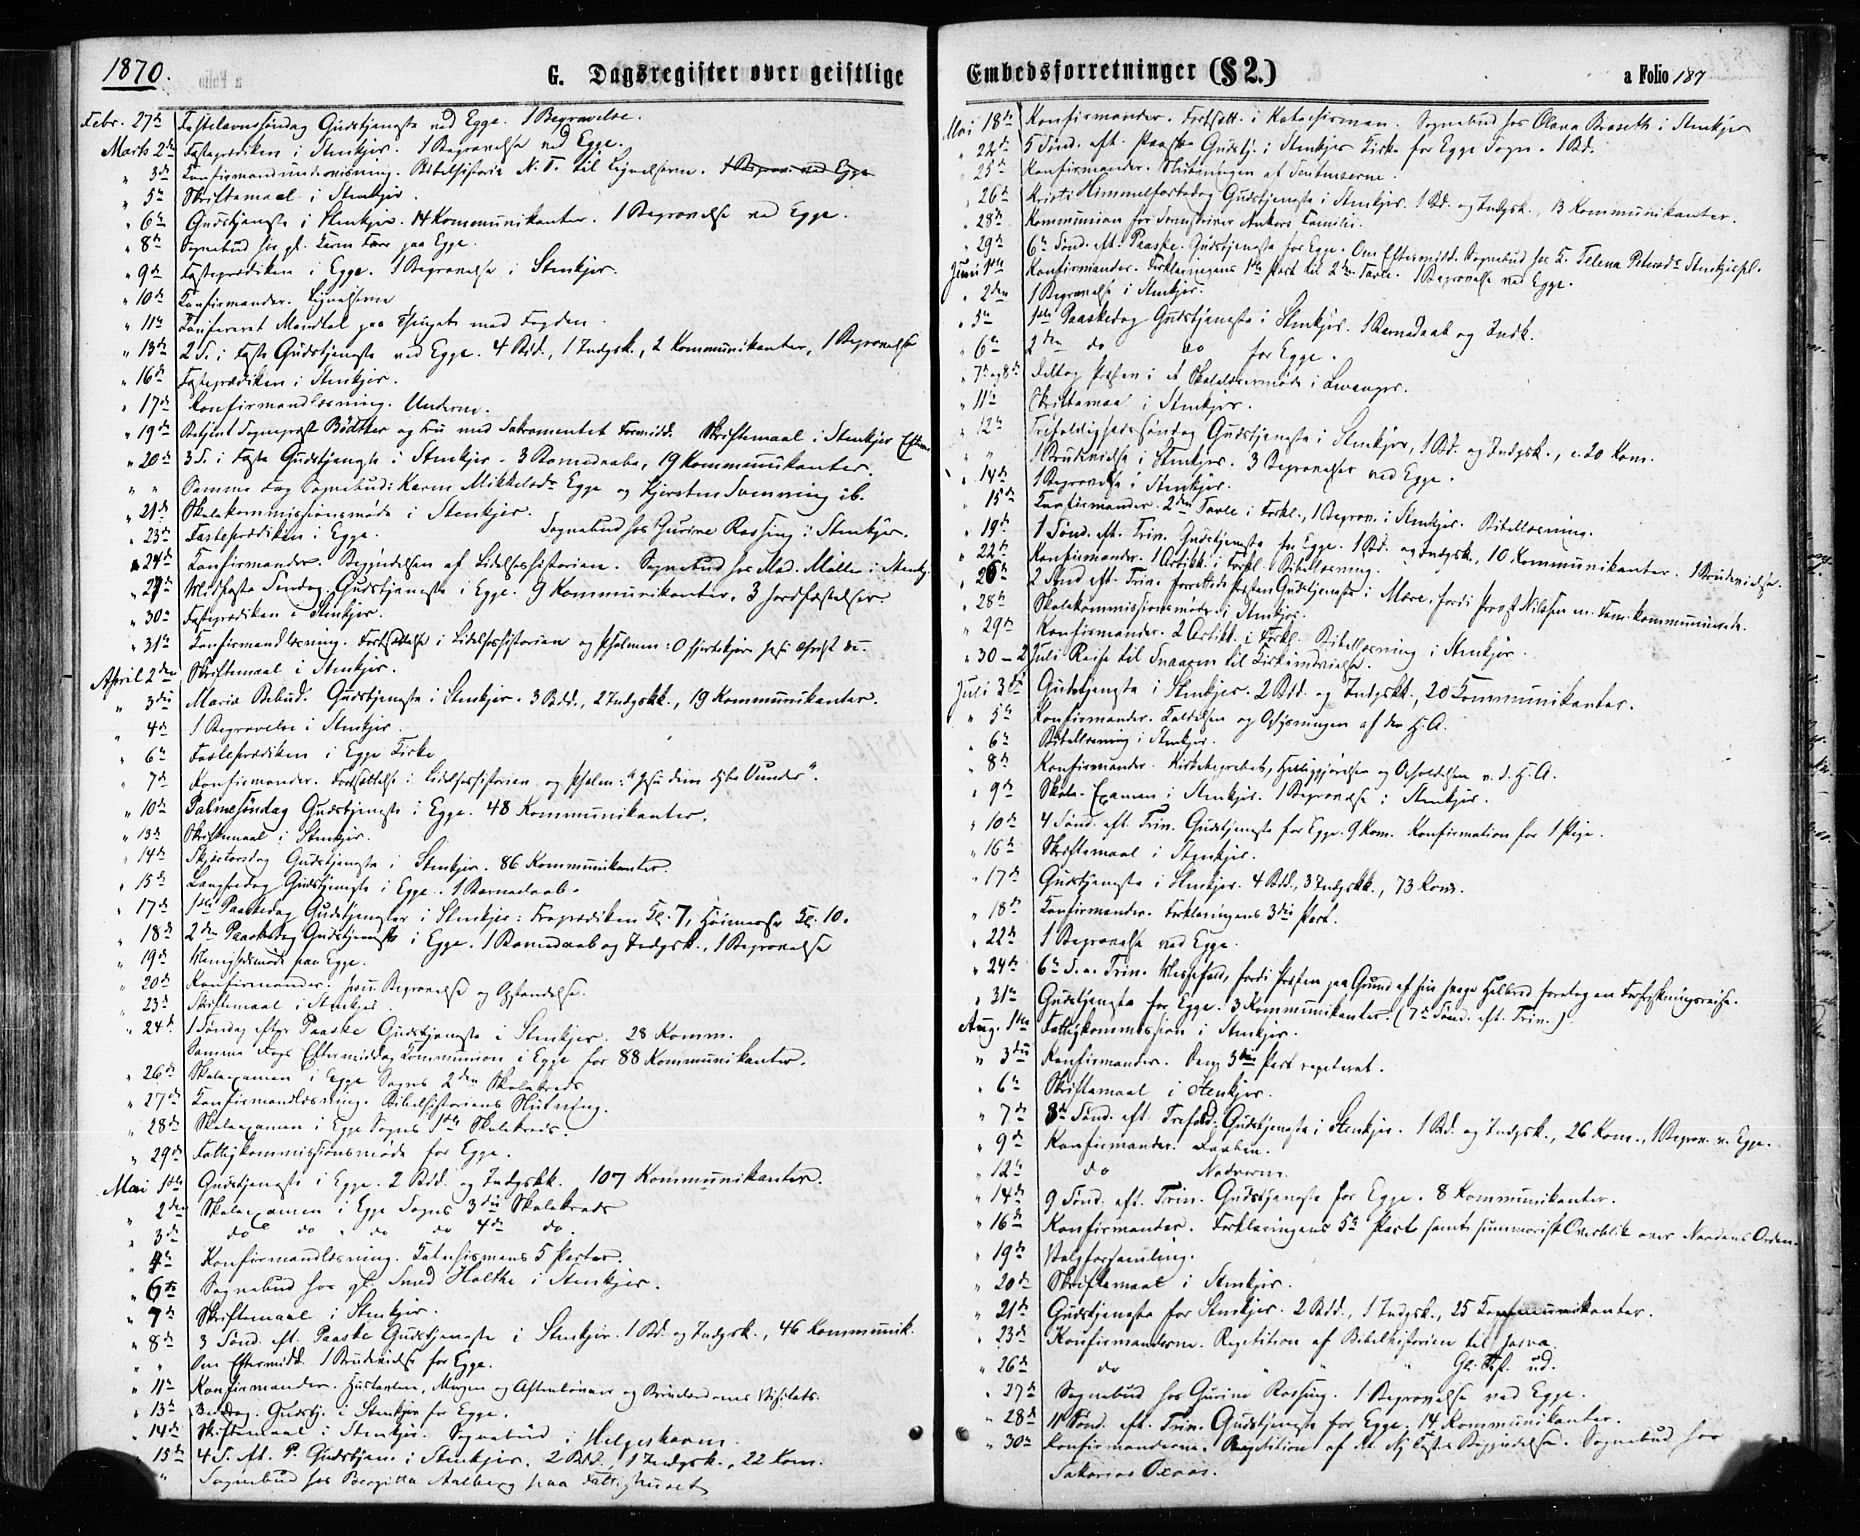 1870.
G. Dagsregister over geistlige
Febr. 27de Fastelavnssöndag Gudstjeneste ved Egge. 1 Begravelse.
Marts 2den Fasteprædiken i Stenkjer. 1 Begravelse ved Egge.
" 3die Konfirmandundervisning. Bibelhistorie N. T. til Lignelserne. 1 Begrav. ved Egge
" 5te Skriftemaal i Stenkjer.
" 6te Gudstjeneste i Stenkjer. 14 Kommunikanter. 1 Begravelse ved Egge.
" 8de Sognebud hos gl. Karen Færø paa Egge.
" 9de Fasteprædiken i Egge. 1 Begravelse i Stenkjer.
" 10de Konfirmander. Lignelserne
" 11te Konfereret Mandtal paa Thinget med Fogden.
" 13de 2 S. i Faste Gudstjeneste ved Egge. 4 Bd., 1 Indgsk., 2 Kommunikanter, 1 Begravelse
" 16de Fasteprædiken i Stenkjer.
" 17de Konfirmandlæsning. Underne.
" 19de Betjent Sognepræst Bödtker og Fru med Sakramentet Formidd. Skriftemaal i Stenkjer Efterm
" 20de 3 S. i Faste Gudstjeneste i Stenkjer. 3 Barnedaabe, 19 Kommunikanter.
" " Samme Dag Sognebud: Karen Mikkelsdr Egge og Kjersten Svenning ib.
" 21de Skolekommissionsmöde i Stenkjer.
" 23de Fasteprædiken i Egge. Sognebud hos Gurine Rossing i Stenkjer.
" 24de Konfirmander. Begyndelsen af Lidelseshistorien. Sognebud hos Mad. Möller i Stenkj.
" 27de Midfaste Söndag Gudstjeneste i Egge. 9 Kommunikanter. 3 Jordfæstelser.
" 30te Fasteprædiken i Stenkjer.
" 31te Konfirmandlæsning. Fortsættelse i Lidelseshistorien og Psalmen: O Hjertekjære Jesu Christ du.
April 2den Skriftemaal i Stenkjer.
" 3die Mariæ Bebud. Gudstjeneste i Stenkjer. 3 Bdd., 2 Indgskk., 19 Kommunikanter.
" 4de 1 Begravelse i Stenkjer.
" 6te Fasteprædiken i Egge Kirke
" 7de Konfirmander. Fortsættelse i Lidelseshistorien og Psalm: "Jesu dine dybe Vunder".
" 10de Palmesöndag Gudstjeneste i Egge. 48 Kommunikanter.
" 13de Skriftemaal i Stenkjer.
" 14de Skjertorsdag Gudstjeneste i Stenkjer. 86 Kommunikanter.
" 15de Langfredag Gudstjeneste i Egge. 1 Barnedaab.
" 17de 1ste Paaskedag Gudstjenester i Stenkjer: Froprædiken Kl. 7, Höimesse Kl. 10.
" 18de 2den Paaskedag Gudstjeneste i Egge. 1 Barnedaab og Indgsk., 1 Begravelse
" 19de Menighedsmöde paa Egge.
" 20de Konfirmander. Jesu Begravelse og Opstandelse.
" 23de Skriftemaal i Stenkjer
" 24de 1 Söndag efter Paaske Gudstjeneste i Stenkjer. 28 Komm.
Samme Dags Eftermiddag Kommunion i Egge for 88 Kommunikanter.
" 26de Skoleexamen i Egge Sogns 2den Skolekreds
" 27de Konfirmandlæsning. Bibelhistoriens Slutning.
" 28de Skoleexamen i Egge Sogns 1ste Skolekreds.
" 29de Fattigkommissionsmöde for Egge.
Mai 1ste Gudstjeneste i Egge. 2 Bdd. og Indgskk. 107 Kommunikanter.
" 2den Skoleexamen i Egge Sogns 3die Skolekreds
" 3die do do do do 4de do.
" 4de Konfirmandlæsning. Katechismens 5 Parter.
" 6te Sognebud hos gl. Smed Holthe i Stenkjer.
" 7de Skriftemaal i Stenkjer.
" 8de 3 Sönd. eft. Paaske Gudstjeneste i Stenkjer. 1 Bd. og Indgsk., 46 Kommunik.
" " Om Eftermidd. 1 Brudevielse for Egge.
" 11te Konfirmander. Hustavlen, Morgen og Aftenbönner og Brudendernes Visitats.
" 13de Bededag. Gudstj. i Stenkjer for Egge.
" 14de Skriftemaal i Stenkjer. Sognebud i Helgeshavn.
" 15de 4 S. eft. P. Gudstjen. i Stenkjer. 2 Bdd., 1 Indgsk., 22 Kom.
" Sognebud hos Bergitta Aalberg paa Fattighuset
Embedsforretninger (§ 2.)
a Folio 187
Mai 18de Konfirmander. Fortsatt. i Katechismen. Sognebud hos Olava Braseth i Stenkjer
" 22de 5 Sönd. eft. Paaske Gudstj. i Stenkjer Kirke for Egge Sogn. 1 Bd.
" 25de Konfirmander. Slutningen af
" 26de Kristi Himmelfartsdag Gudstjeneste i Stenkjer. 1 Bd. og Indgsk., 13 Kommunikanter.
" 28de Kommunion for Sorenskriver Ankers Familie.
" 29de 6te Sönd. eft. Paaske. Gudstjeneste for Egge. Om Eftermidd. Sognebud hos K. Telena Petersdr. Stenkjerpl.
Juni 1ste Konfirmander. Forklaringens 1ste Part til 2den Tavle. 1 Begravelse ved Egge.
" 2den 1 Begravelse i Stenkjer.
" 5te 1ste Paaskedag Gudstjeneste i Stenkjer. 1 Barnedaab og Indk.
" 6te 2den do do for Egge.
" 7de og 8de Deltog Presten i et Skolelærermöde i Levanger.
" 11te Skriftemaal i Stenkjer.
" 12te Trefoldighedssöndag Gudstjeneste i Stenkjer, 1 Bd. og Indgsk., c. 20 Kom.
" " 1 Brudevielse i Stenkjer. 3 Begravelser ved Egge.
" 14de 1 Begravelse i Stenkjer.
" 15de Konfirmander. 2den Tavle i Forkl., 1 Begrav. i Stenkjer. Bibellæsning.
" 19de 1 Sönd. eft. Trin. Gudstjeneste for Egge. 1 Bd. og Indgsk, 10 Kommunikanter. 1 Brudevielse.
" 22de Konfirmander. 1 Artikk. i Forkl. Bibellæsning.
" 26de 2 Sönd eft. Trin. forrettede Presten Gudstjeneste i Mære, fordi Provst Nilssen m. Fam. kommunicerede.
" 28de Skolekommissionsmöde i Stenkjer.
" 29de Konfirmander. 2 Artikk. i Forkl. Bibellæsning i Stenkjer.
" 30–2 Juli Reise til Snaasen til Kirkeindvielse.
Juli 3die Gudstjeneste i Stenkjer. 2 Bdd. og Indgskk., 20 Kommunikanter.
" 5te Konfirmander. Kaldelsen og Oplysningen af den H. A.
" 6te Bibellæsning i Stenkjer.
" 8de Konfirmander. Kirkebegrebet, Helliggjörelsen og Opholdelsen v. d. H. A.
" 9de Skole-Examen i Stenkjer. 1 Begravelse i Stenkjer.
" 10de 4 Sönd. eft. Trin. Gudstjeneste for Egge. 9 Kom. Konfirmation for 1 Pige.
" 16de Skriftemaal i Stenkjer.
" 17de Gudstjeneste i Stenkjer. 4 Bdd., 3 Indgskk., 73 Kom.
" 18de Konfirmander. Forklaringens 3die Part.
" 22de 1 Begravelse ved Egge.
" 24de 6te S. e. Trin. Messefald, fordi Presten paa Grund af sin svage Helbred foretog en Forfriskningsreise.
" 31te Gudstjeneste for Egge. 3 Kommunikanter. (7de Sönd. eft. Trin.)
Aug. 1ste Fattigkommission i Stenkjer.
" 3die Konfirmander. Den 3die Part repeteret.
" 6te Skriftemaal i Stenkjer.
" 7de 8de Sönd. eft. Trefold. Gudstjeneste i Stenkjer. 1 Bd. og Indgsk., 26 Kom., 1 Begrav. v. Egge.
" 9de Konfirmander. Daaben.
" 12te do Nadveren.
" 14de 9 Sönd. eft. Trin. Gudstjeneste for Egge. 8 Kommunikanter.
" 16de Konfirmander. Forklaringens 5te Part samt summarisk Overblik over Naadens Orden.
" 19de Valgforsamling.
" 20de Skriftemaal i Stenkjer.
" 21de Gudstjeneste for Stenkjer. 2 Bdd., 1 Indgsk., 25 Kommunikanter.
" 23de Konfirmanderne. Repetition af Bibelhistorien til Josva.
" 26de do " " Gl. Test. ud.
" 27de Sognebud hos Gurine Rossing. 1 Begravelse ved Egge.
" 28de 11 Sönd. eft. Trin. Gudstjeneste for Egge. 14 Kommunikanter.
" 30te Konfirmanderne. Repetition af det Ny Testa Begyndelse. Sognebud hos
Sakarias Oxaas.